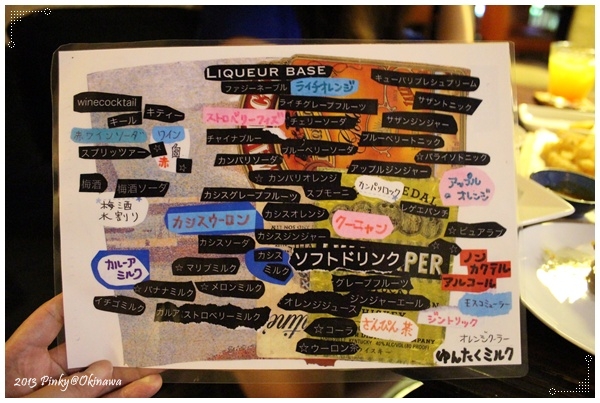 LIQUEUR BASE
winecocktail
キール
キティー
赤ワインソーダー
ワイン
白
赤
スプリッツァー
梅酒
梅酒ソーダ
梅酒水割り
カルーアミルク
☆マリブミルク
☆バナナミルク
☆メロンミルク
イチゴミルク
カルア ストロベリーミルク
ファジーネーブル
ライチオレンジ
ライチグレープフルーツ
ストロベリーフィズ
チェリーソーダー
チャイナブルー
ブルーベリーソーダー
カンパリソーダ
☆カンパリオレンジ
カシスグレープフルーツ
スプモーニ
カシスウーロン
カシスオレンジ
クーニャン
カシスジンジャー
カシスソーダ
カシスミルク
キューバリブレシュプリーム
サザントニック
サザンジンジャー
ブルーベリートニック
☆パライソトニック
アップルジンジャー
カンパリロック
アップルオレンジ
レゲエパンチ
☆ピュアラブ
ソフトドリンク
グレープフルーツ
ジンジャーエール
オレンジジュース
☆コーラ
さんぴん茶
☆ウーロン茶
ノンアルコールカクテル
モスコミューラー
ジントリック
オレンジクーラー
ゆんたくミルク
2013 Pinky@Okinawa